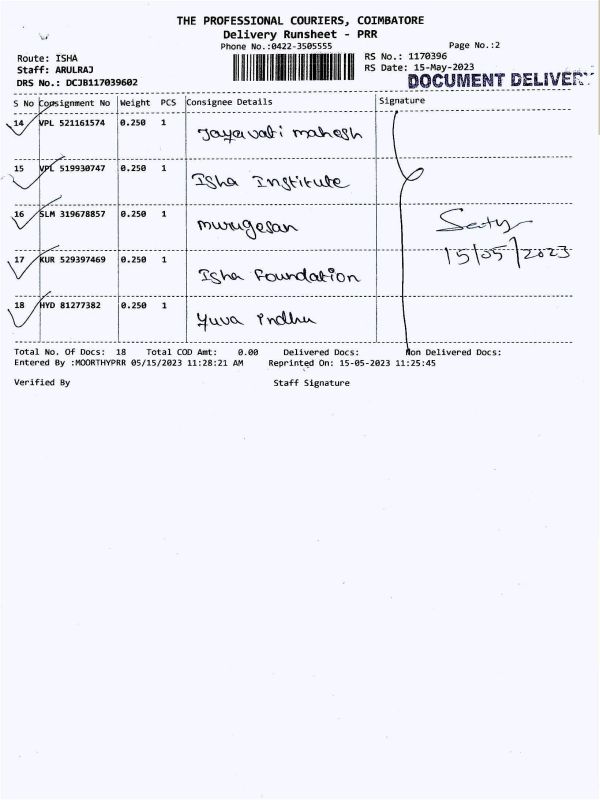 THE PROFESSIONAL COURIERS, COIMBATORE
Delivery Runsheet - PRR
Phone No.:0422-3505555
Page No.:2
Route: ISHA
RS No.: 1170396
Staff: ARULRAJ
RS Date: 15-May-2023
DRS No.: DCJB117039602
DOCUMENT DELIVERY
S No Consignment No Weight PCS Consignee Details Signature
14 VPL 521161574 0.250 1 Jayavati mahesh
15 VPL 519930747 0.250 1 Isha Institute
16 SLM 319678857 0.250 1 murugesan
15/05/2023
17 KUR 529397469 0.250 1 Isha Foundation
18 HYD 81277382 0.250 1 Yuva Indhu
Total No. Of Docs: 18 Total COD Amt: 0.00 Delivered Docs: Non Delivered Docs:
Entered By :MOORTHYPRR 05/15/2023 11:28:21 AM Reprinted On: 15-05-2023 11:25:45
Verified By Staff Signature